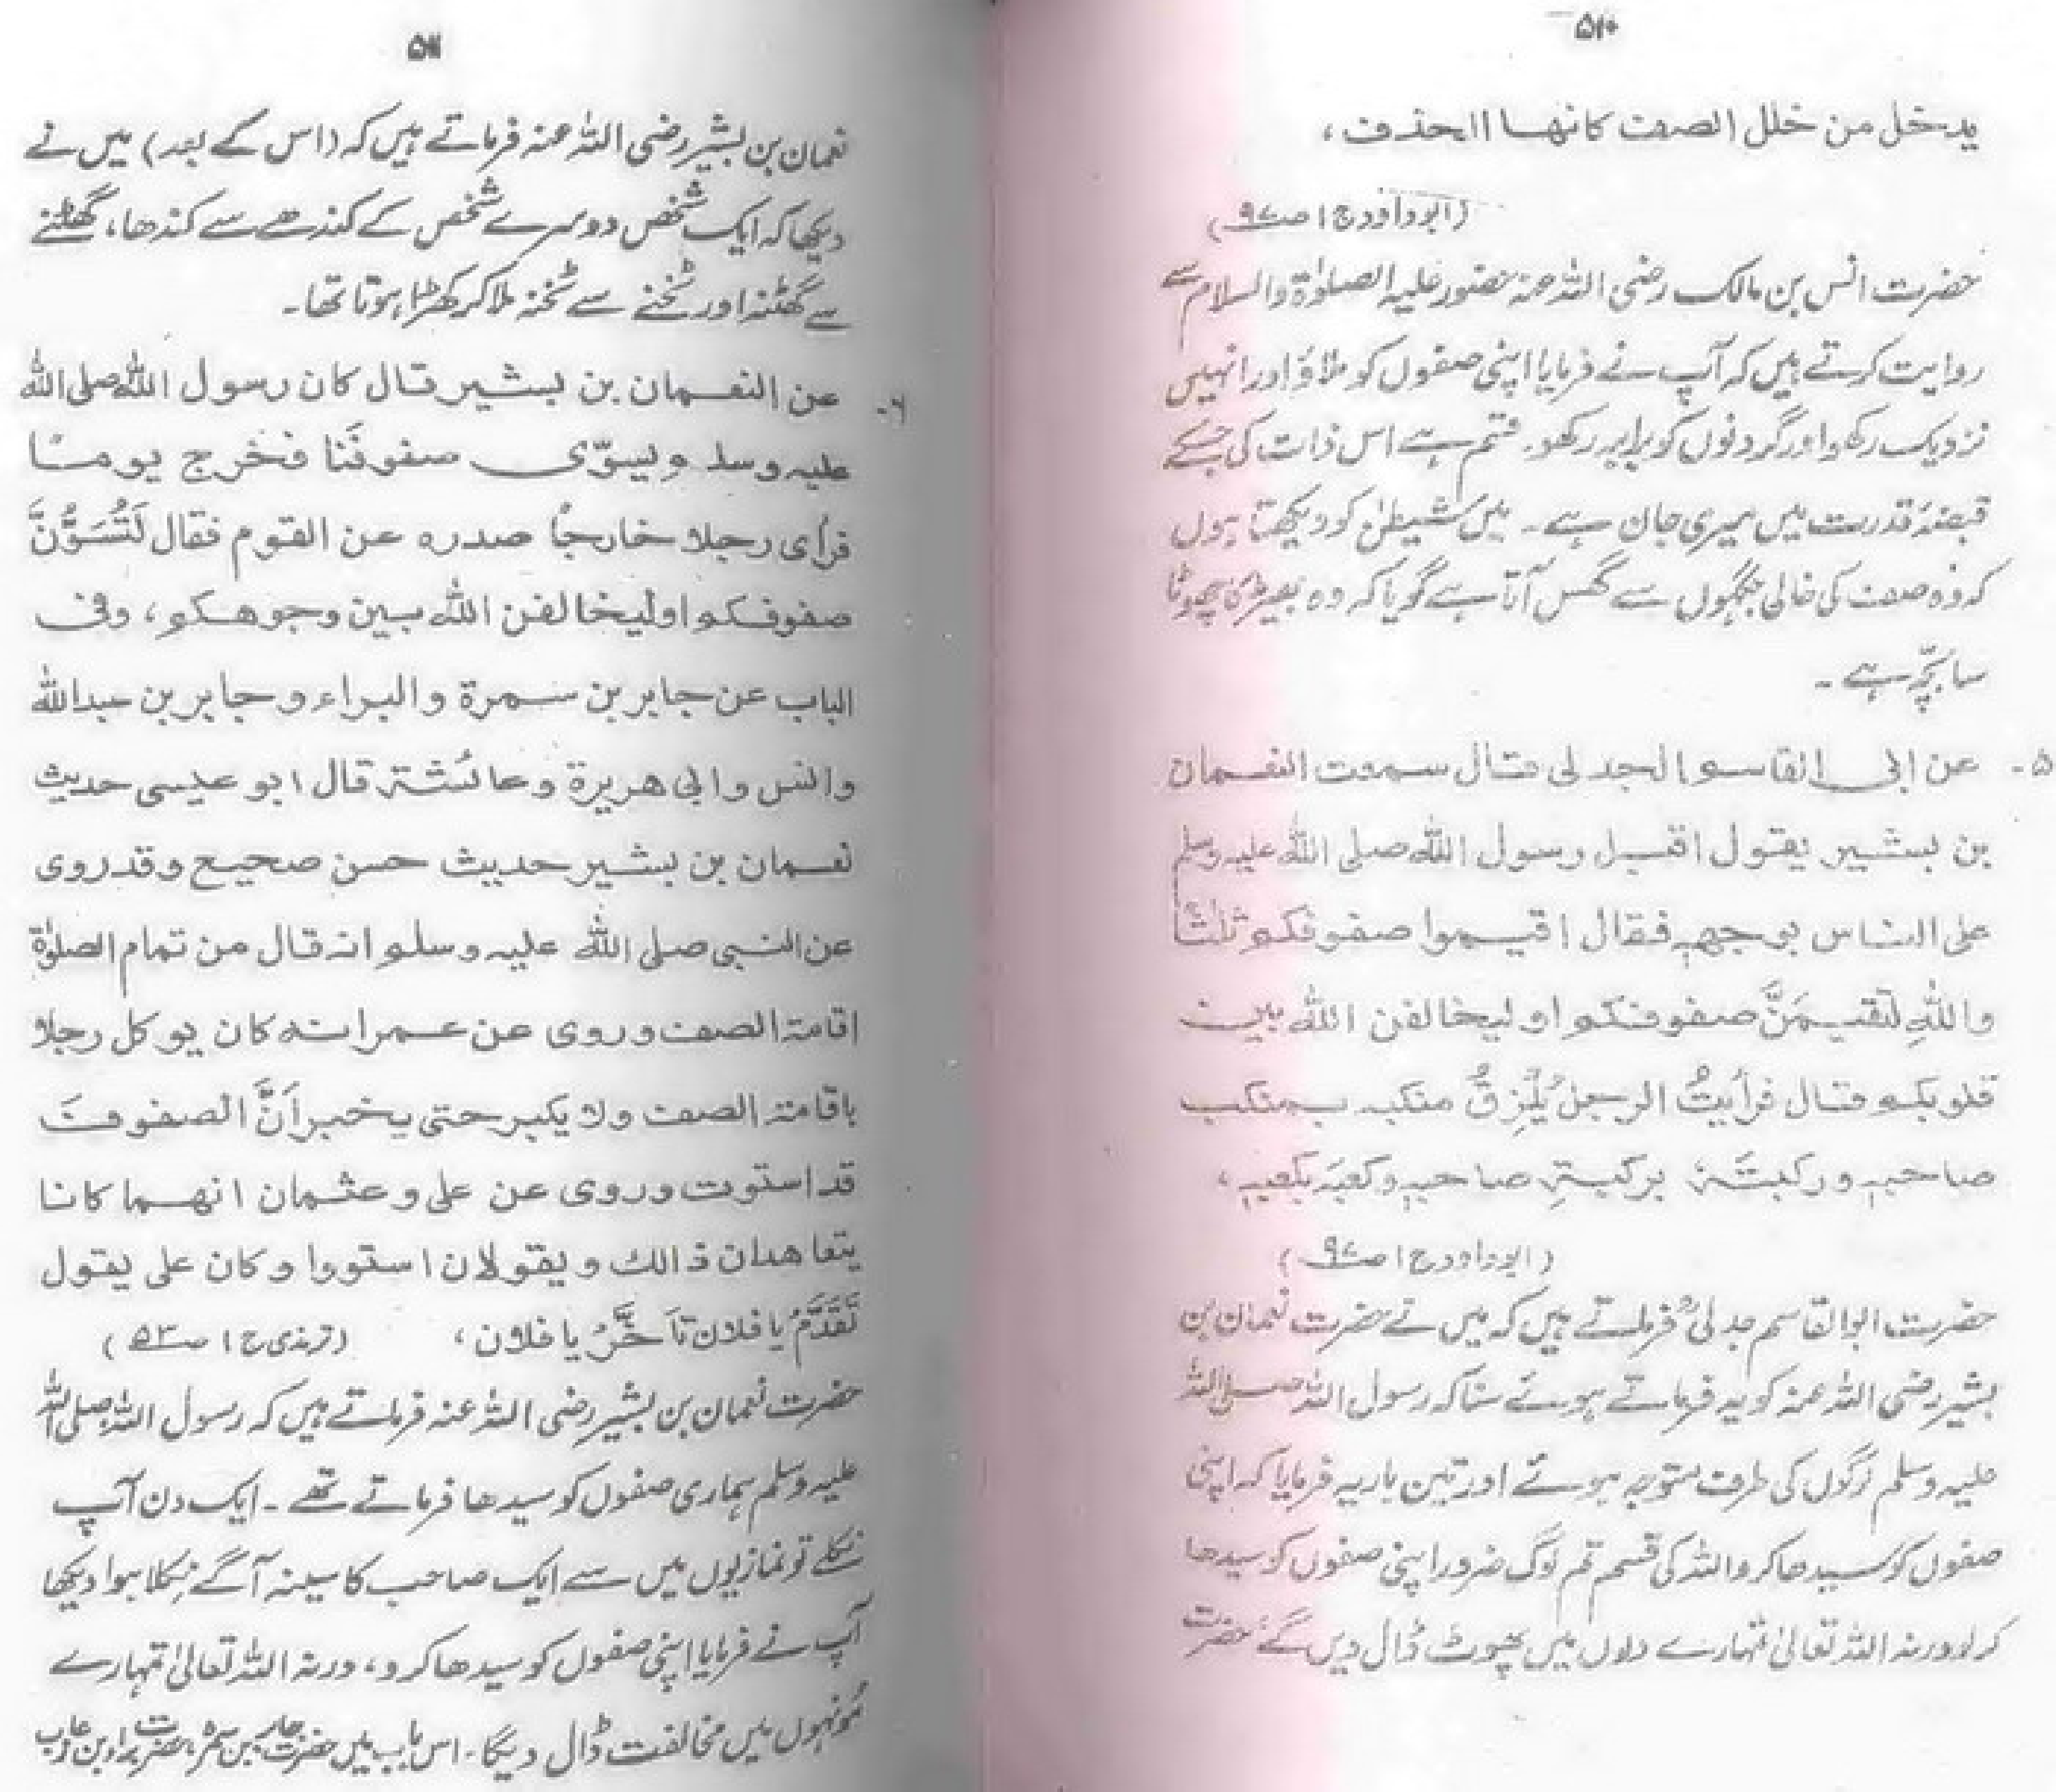 ۵۱۰
يدخل من خلل الصف كانها الحذف ،
(ابوداؤد ج ۱ ص۹۷)
حضرت انس بن مالک رضی اللہ عنہ حضور علیہ الصلوٰۃ والسلام سے
روایت کرتے ہیں کہ آپ نے فرمایا اپنی صفوں کو ملاؤ اور انہیں
نزدیک رکھو اور گردنوں کو برابر رکھو۔ قسم ہے اس ذات کی جسکے
قبضۂ قدرت میں میری جان ہے۔ میں شیطٰن کو دیکھتا ہوں
کہ وہ صف کی خالی جگہوں سے گھس آتا ہے گویا کہ وہ بھیڑ کا چھوٹا
سا بچّہ ہے ۔
۵۔ عن ابى القاسم الجدلى قال سمعت النعمان
بن بشير يقول اقبل رسول الله صلى الله عليه وسلم
على الناس بوجهه فقال اقيموا صفوفكم ثلثًا
واللهِ لَتقيمَنَّ صفوفكم او ليخالفن الله بين
قلوبكم قال فرأيتُ الرجل يُلْزِقُ منكبه بمنكب
صاحبه وركبتَه بركبةِ صاحبه وكعبَه بكعبه ،
(ابوداود ج ۱ ص۹۷)
حضرت ابوالقاسم جدلیؒ فرماتے ہیں کہ میں نے حضرت نعمان بن
بشیر رضی اللہ عنہ کو یہ فرماتے ہوئے سنا کہ رسول اللہ صلی اللہ
علیہ وسلم لوگوں کی طرف متوجہ ہوئے اور تین بار یہ فرمایا کہ اپنی
صفوں کو سیدھا کرو اللہ کی قسم تم لوگ ضرور اپنی صفوں کو سیدھا
کر لو ورنہ اللہ تعالیٰ تمہارے دلوں میں پھوٹ ڈال دیں گے، حضرت
۵۱۱
نعمان بن بشیر رضی اللہ عنہ فرماتے ہیں کہ (اس کے بعد) میں نے
دیکھا کہ ایک شخص دوسرے شخص کے کندھے سے کندھا، گھٹنے
سے گھٹنہ اور ٹخنے سے ٹخنہ ملا کر کھڑا ہوتا تھا۔
۶۔ عن النعمان بن بشير قال كان رسول الله صلى الله
عليه وسلم يسوّى صفوفَنا فخرج يومًا
فرأى رجلا خارجًا صدره عن القوم فقال لَتُسَوُّنَّ
صفوفكم او ليخالفن الله بين وجوهكم ، وفى
الباب عن جابر بن سمرة والبراء وجابر بن عبدالله
وانس وابى هريرة وعائشة قال ابو عيسى حديث
نعمان بن بشير حديث حسن صحيح وقد روى
عن النبى صلى الله عليه وسلم انه قال من تمام الصلوٰة
اقامة الصف وروى عن عمر انه كان يوكل رجلا
باقامة الصف ولا يكبر حتى يخبر اَنَّ الصفوفَ
قد استوت وروى عن على وعثمان انهما كانا
يتعاهدان ذالك ويقولان استووا وكان على يقول
تَقَدَّمْ يا فلان تَاَخَّرْ يا فلان ، (ترمذى ج ۱ ص۵۳)
حضرت نعمان بن بشیر رضی اللہ عنہ فرماتے ہیں کہ رسول اللہ صلی اللہ
علیہ وسلم ہماری صفوں کو سیدھا فرماتے تھے ۔ ایک دن آپ
نکلے تو نمازیوں میں سے ایک صاحب کا سینہ آگے نکلا ہوا دیکھا
آپ نے فرمایا اپنی صفوں کو سیدھا کرو، ورنہ اللہ تعالیٰ تمہارے
مُونہوں میں مخالفت ڈال دیگا۔ اس باب میں حضرت جابر بن سمرہ، حضرت براء بن عازب